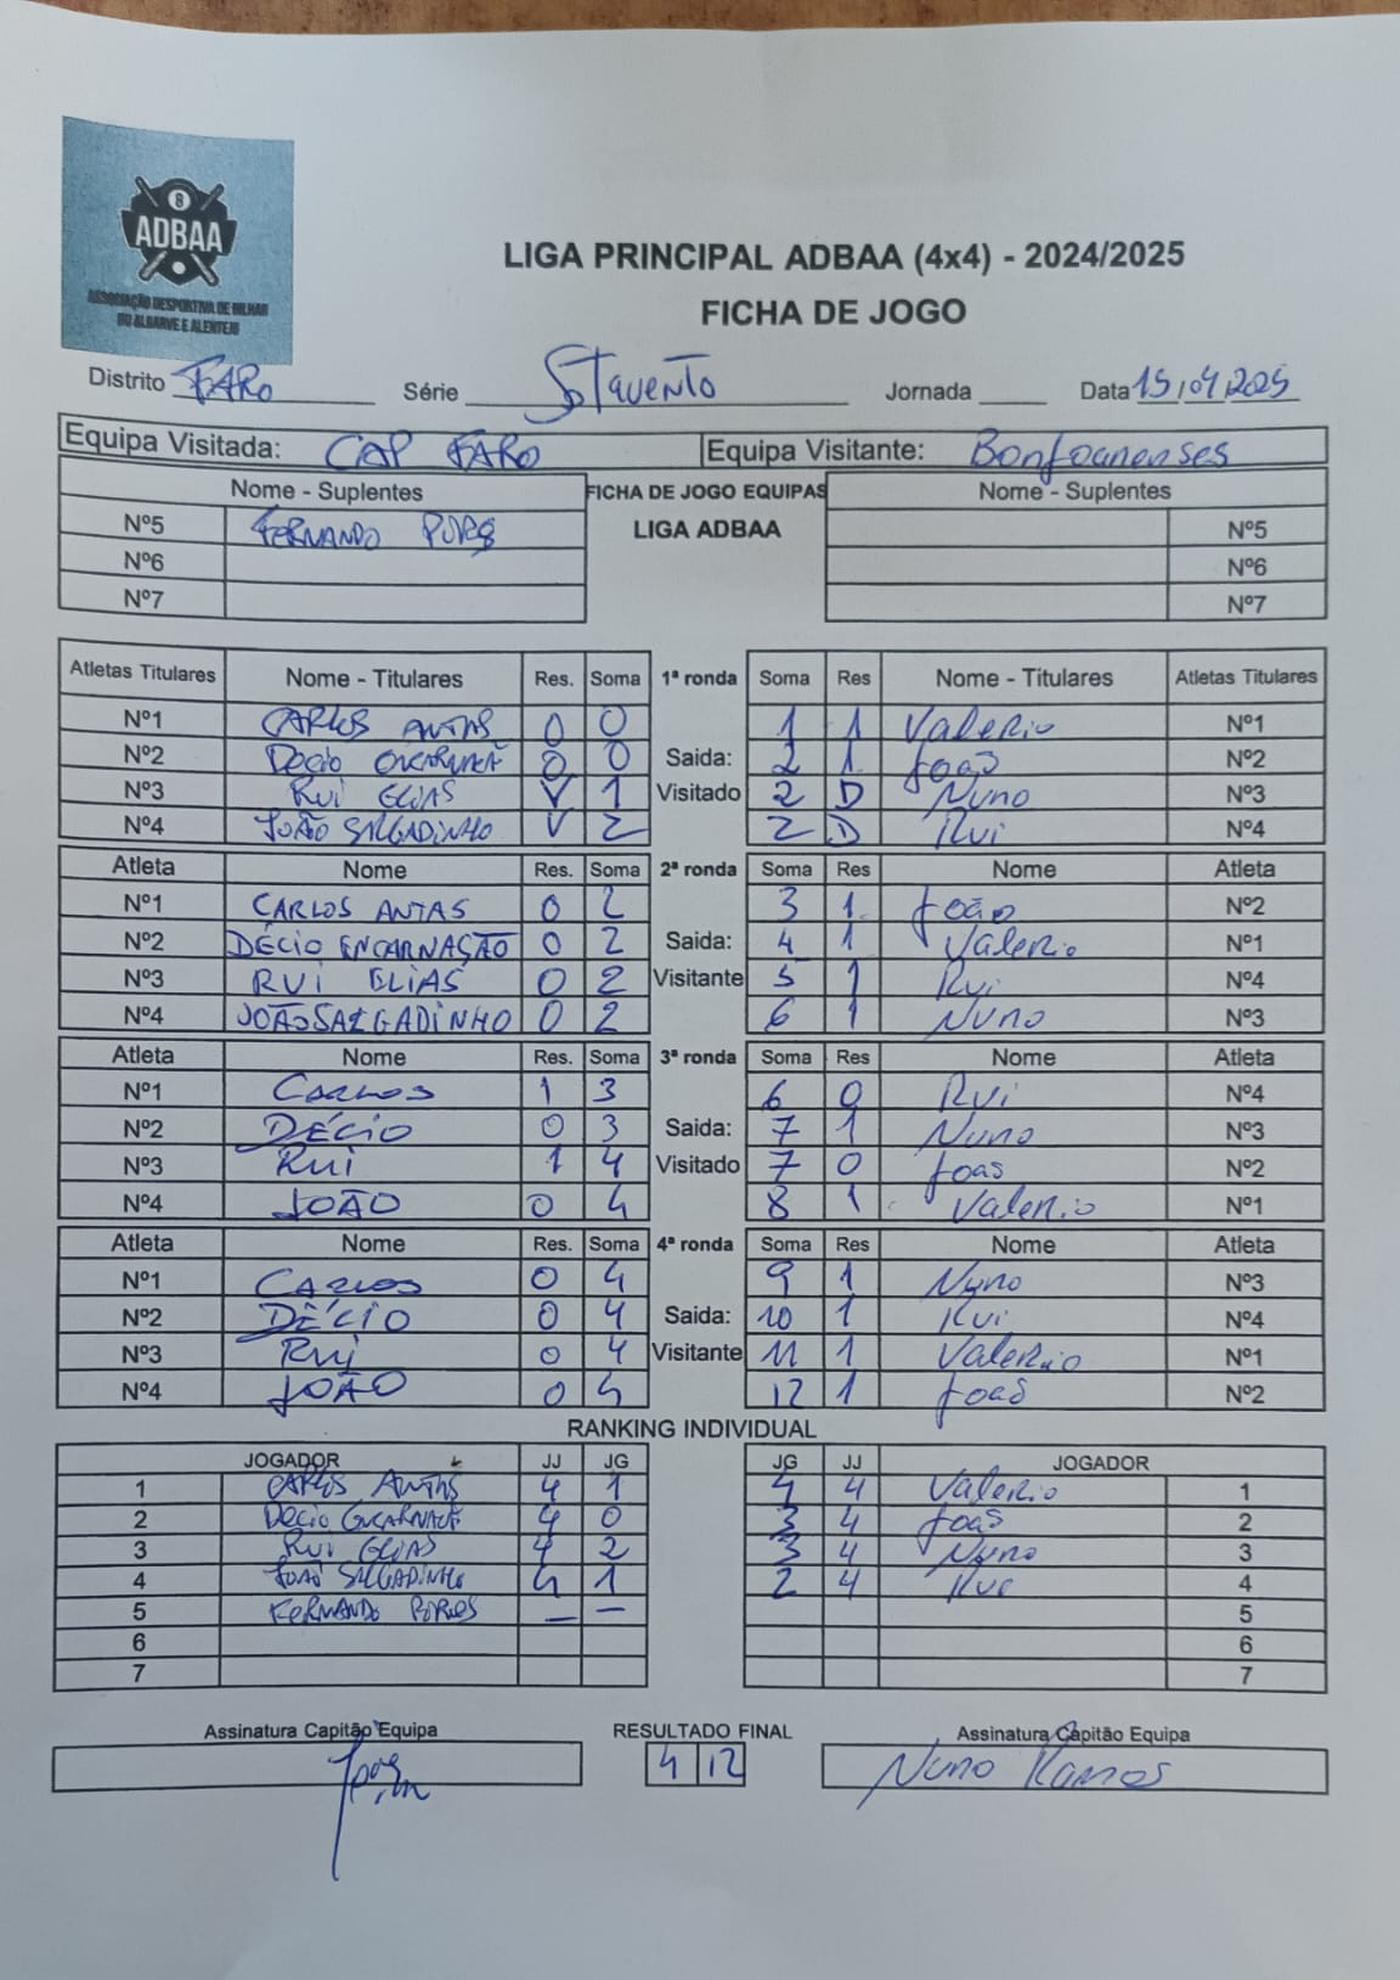 8
ADBAA
ASSOCIAÇÃO DESPORTIVA DE BILHAR
DO ALGARVE E ALENTEJO
LIGA PRINCIPAL ADBAA (4x4) - 2024/2025
FICHA DE JOGO
Distrito FARO Série Sotavento Jornada Data 15/04/2025
Equipa Visitada: CAP FARO Equipa Visitante: Bonjoanenses
Nome - Suplentes FICHA DE JOGO EQUIPAS Nome - Suplentes
Nº5 FERNANDO LIGA ADBAA Nº5
Nº6 Nº6
Nº7 Nº7
Atletas Titulares Nome - Titulares Res. Soma 1ª ronda Soma Res Nome - Titulares Atletas Titulares
Nº1 CARLOS ANTAS 0 0 1 1 Valerio Nº1
Nº2 Decio 0 0 Saida: 2 1 João Nº2
Nº3 Rui ELIAS V 1 Visitado 2 D Nuno Nº3
Nº4 JOÃO SALGADINHO V 2 2 D Rui Nº4
Atleta Nome Res. Soma 2ª ronda Soma Res Nome Atleta
Nº1 CARLOS ANTAS 0 2 3 1 João Nº2
Nº2 DÉCIO ENCARNAÇÃO 0 2 Saida: 4 1 Valerio Nº1
Nº3 RUI ELIAS 0 2 Visitante 5 1 Rui Nº4
Nº4 JOÃO SALGADINHO 0 2 6 1 Nuno Nº3
Atleta Nome Res. Soma 3ª ronda Soma Res Nome Atleta
Nº1 CARLOS 1 3 6 0 Rui Nº4
Nº2 DÉCIO 0 3 Saida: 7 1 Nuno Nº3
Nº3 Rui 1 4 Visitado 7 0 Joao Nº2
Nº4 JOÃO 0 4 8 1 Valerio Nº1
Atleta Nome Res. Soma 4ª ronda Soma Res Nome Atleta
Nº1 CARLOS 0 4 9 1 Nuno Nº3
Nº2 DÉCIO 0 4 Saida: 10 1 Rui Nº4
Nº3 Rui 0 4 Visitante 11 1 Valerio Nº1
Nº4 JOÃO 0 4 12 1 João Nº2
RANKING INDIVIDUAL
JOGADOR JJ JG JG JJ JOGADOR
1 CARLOS ANTAS 4 1 4 4 Valerio 1
2 Decio 4 0 3 4 João 2
3 Rui ELIAS 4 2 3 4 Nuno 3
4 JOÃO SALGADINHO 4 1 2 4 Rui 4
5 FERNANDO — — 5
6 6
7 7
Assinatura Capitão Equipa RESULTADO FINAL Assinatura Capitão Equipa
4 12 Nuno Ramos